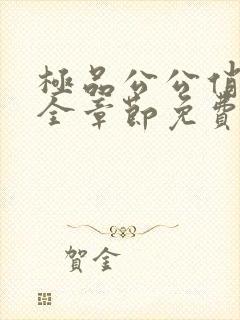 極品公公俏
全章節免費
賀金